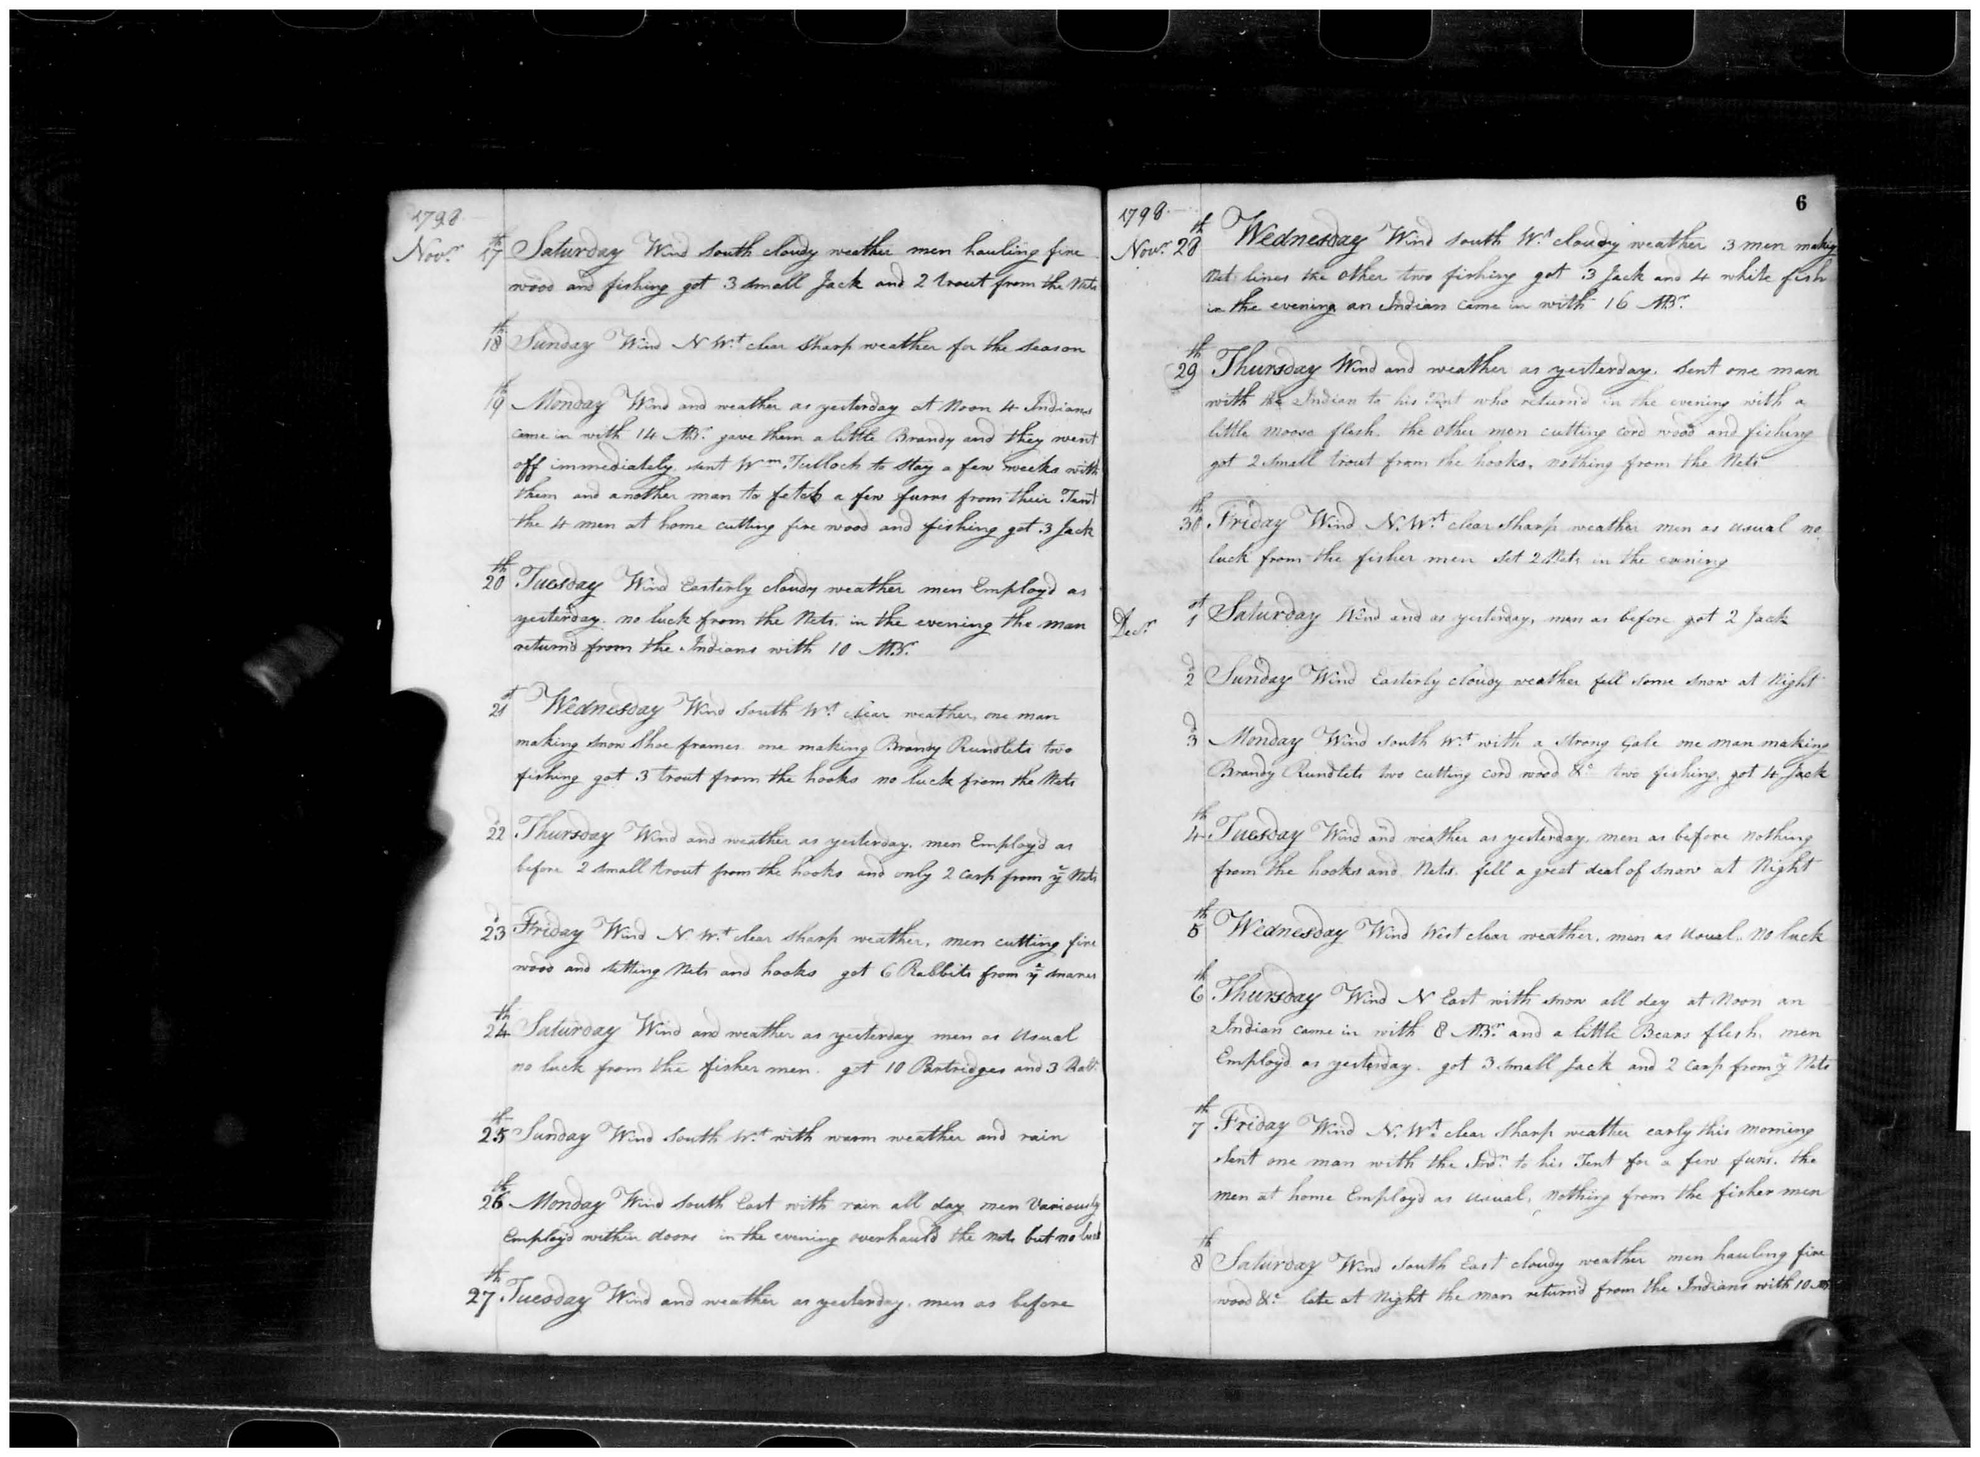 1798
Novr. 17th Saturday Wind South cloudy weather men hauling fire
wood and fishing got 3 small Jack and 2 trout from the Nets
18th Sunday Wind N Wt. clear sharp weather for the season
19th Monday Wind and weather as yesterday at Noon 4 Indians
came in with 14 MBr. gave them a little Brandy and they went
off immediately. sent Wm. Tulloch to stay a few weeks with
them and another man to fetch a few furrs from their Tent
the 4 men at home cutting fire wood and fishing got 3 Jack
20th Tuesday Wind Easterly cloudy weather men Employd as
yesterday. no luck from the Nets. in the evening the man
returnd from the Indians with 10 MBr.
21st Wednesday Wind South Wt. clear weather, one man
making Snow Shoe frames. one making Brandy Rundlets two
fishing got 3 trout from the hooks no luck from the Nets
22d Thursday Wind and weather as yesterday. men Employd as
before 2 small trout from the hooks and only 2 Carp from ye Nets
23d Friday Wind N. Wt. clear sharp weather, men cutting fire
wood and setting Nets and hooks got 6 Rabbits from ye snares
24th Saturday Wind and weather as yesterday men as Usual
no luck from the fisher men. got 10 Partridges and 3 Rabts.
25th Sunday Wind South Wt. with warm weather and rain
26th Monday Wind South East with rain all day men Variously
Employd within doors in the evening overhauld the nets but no luck
27th Tuesday Wind and weather as yesterday. men as before
6
1798
Novr. 28th Wednesday Wind South Wt. cloudy weather 3 men making
Net lines the other two fishing got 3 Jack and 4 white fish
in the evening an Indian came in with 16 MBr.
29th Thursday Wind and weather as yesterday. sent one man
with the Indian to his Tent who returnd in the evening with a
little moose flesh. the other men cutting cord wood and fishing
got 2 small trout from the hooks, nothing from the Nets
30th Friday Wind N. Wt. clear sharp weather men as usual no
luck from the fisher men set 2 Nets in the evening
Decr. 1st Saturday Wind and as yesterday, men as before got 2 Jack
2d Sunday Wind Easterly cloudy weather fell some snow at Night
3d Monday Wind South Wt. with a strong Gale one man making
Brandy Rundlets two cutting cord wood &c two fishing, got 4 Jack
4th Tuesday Wind and weather as yesterday, men as before nothing
from the hooks and Nets. fell a great deal of snow at Night
5th Wednesday Wind West clear weather, men as Usual. No luck
6th Thursday Wind N East with snow all day at Noon an
Indian came in with 8 MBr. and a little Bears flesh. men
Employd as yesterday. got 3 small Jack and 2 Carp from ye Nets
7th Friday Wind N. Wt. clear sharp weather early this morning
sent one man with the Indn. to his Tent for a few furs. the
men at home Employd as usual, nothing from the fisher men
8th Saturday Wind South East cloudy weather men hauling fire
wood &c. late at Night the man returnd from the Indians with 10 MBr